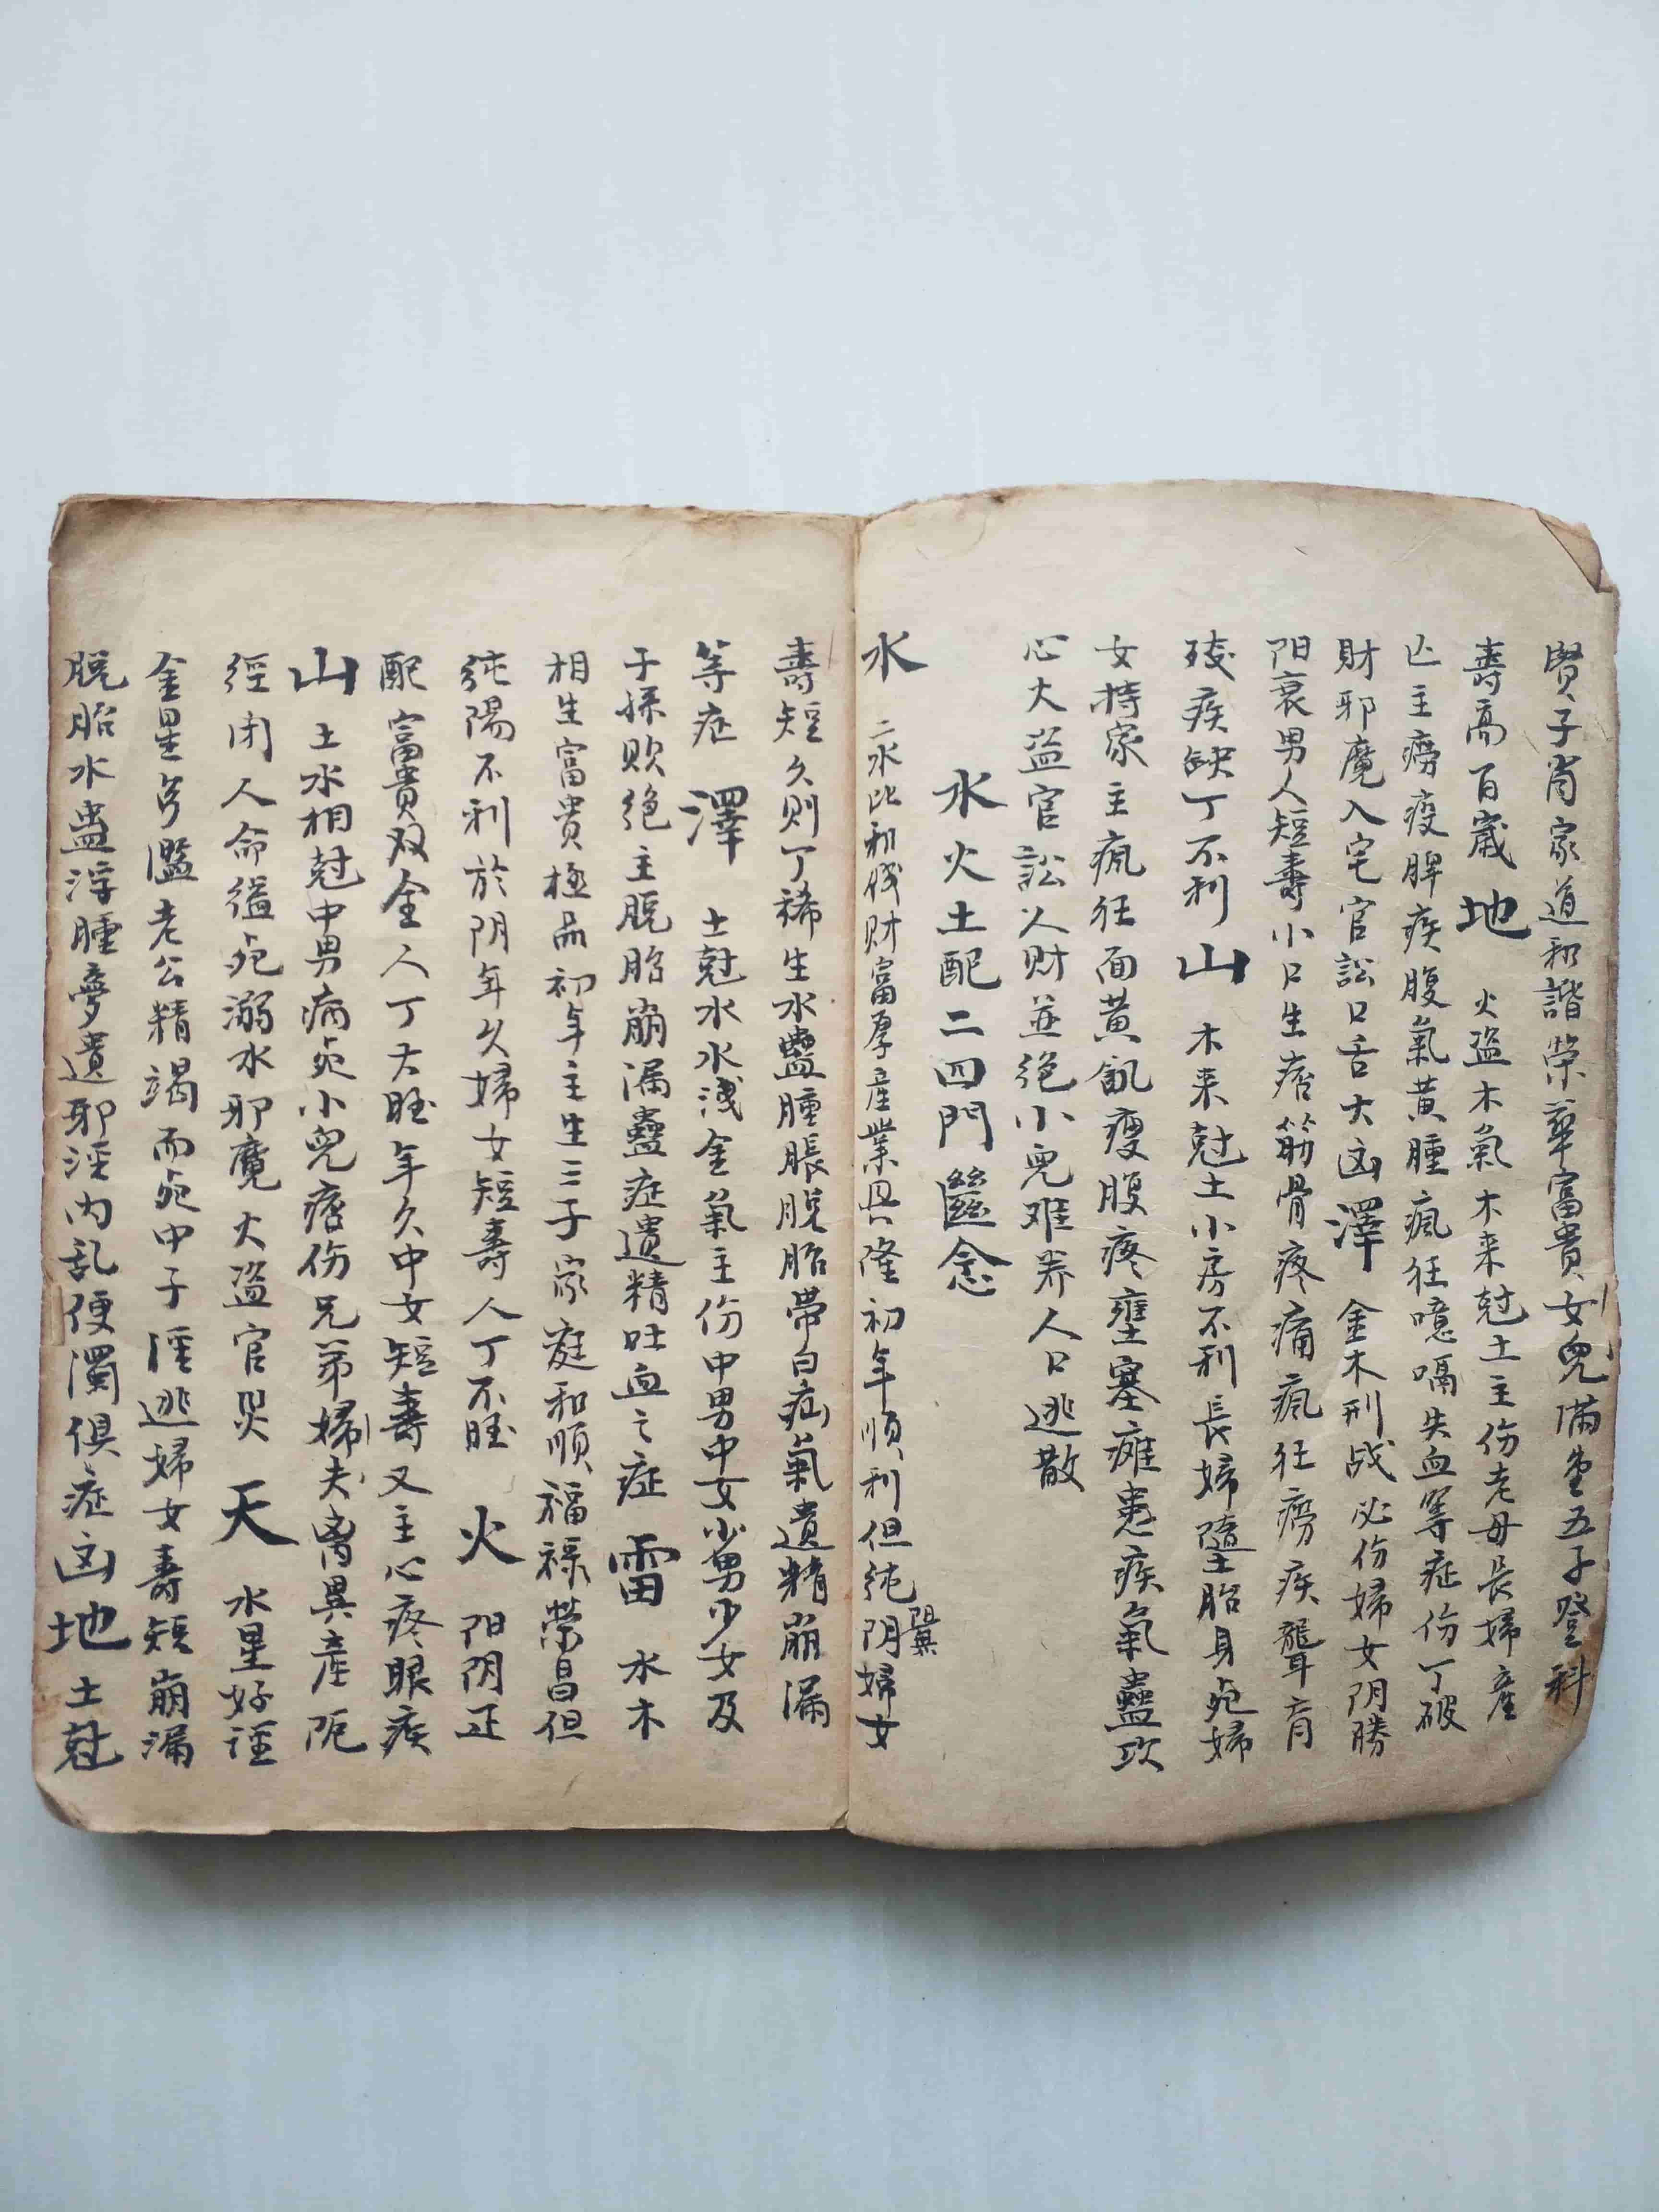 賢子肖家道和諧榮華富貴女兒滿堂五子登科
壽高百歲 地 火盜木氣木来尅土主伤老母長婦産
亡主癆疫脾疾腹氣黄腫瘋狂噫嗝失血等症伤丁破
財邪魔入宅官訟口舌大凶 澤 金木刑战必伤婦女阴勝
阳衰男人短壽小口生瘡筋骨疼痛瘋狂癆疾聾盲
殘疾缺丁不利 山 木来尅土小房不利長婦墮胎身死婦
女持家主瘋狂面黄飢瘦腹疼壅塞癱患疾氣蠱攻
心火盗官訟人财並絶小兒难养人口逃散
水火土配二四門 念
水 二水比和伐财富厚産業興隆初年順利但纯阴婦女
阳異
壽短久则丁稀生水蠱腫脹脱胎帶白疝氣遺精崩漏
等症 澤 土尅水水淺金氣主伤中男中女少男少女及
子孫敗绝主脱胎崩漏蠱症遺精吐血之症 雷 水木
相生富貴極品初年主生三子家庭和順福禄榮昌但
純陽不利於阴年久婦女短壽人丁不旺 火 阳阴正
配富貴双全人丁大旺年久中女短壽又主心疼眼疾
山 土水相尅中男病死小兒瘡伤兄弟婦夫离異産阨
經闭人命縊死溺水邪魔火盗官哭 天 水星好淫
金星多濫老公精竭而死中子淫逃婦女壽短崩漏
脱胎水蛊浮腫夢遺邪淫内乱便濁俱症凶 地 土尅